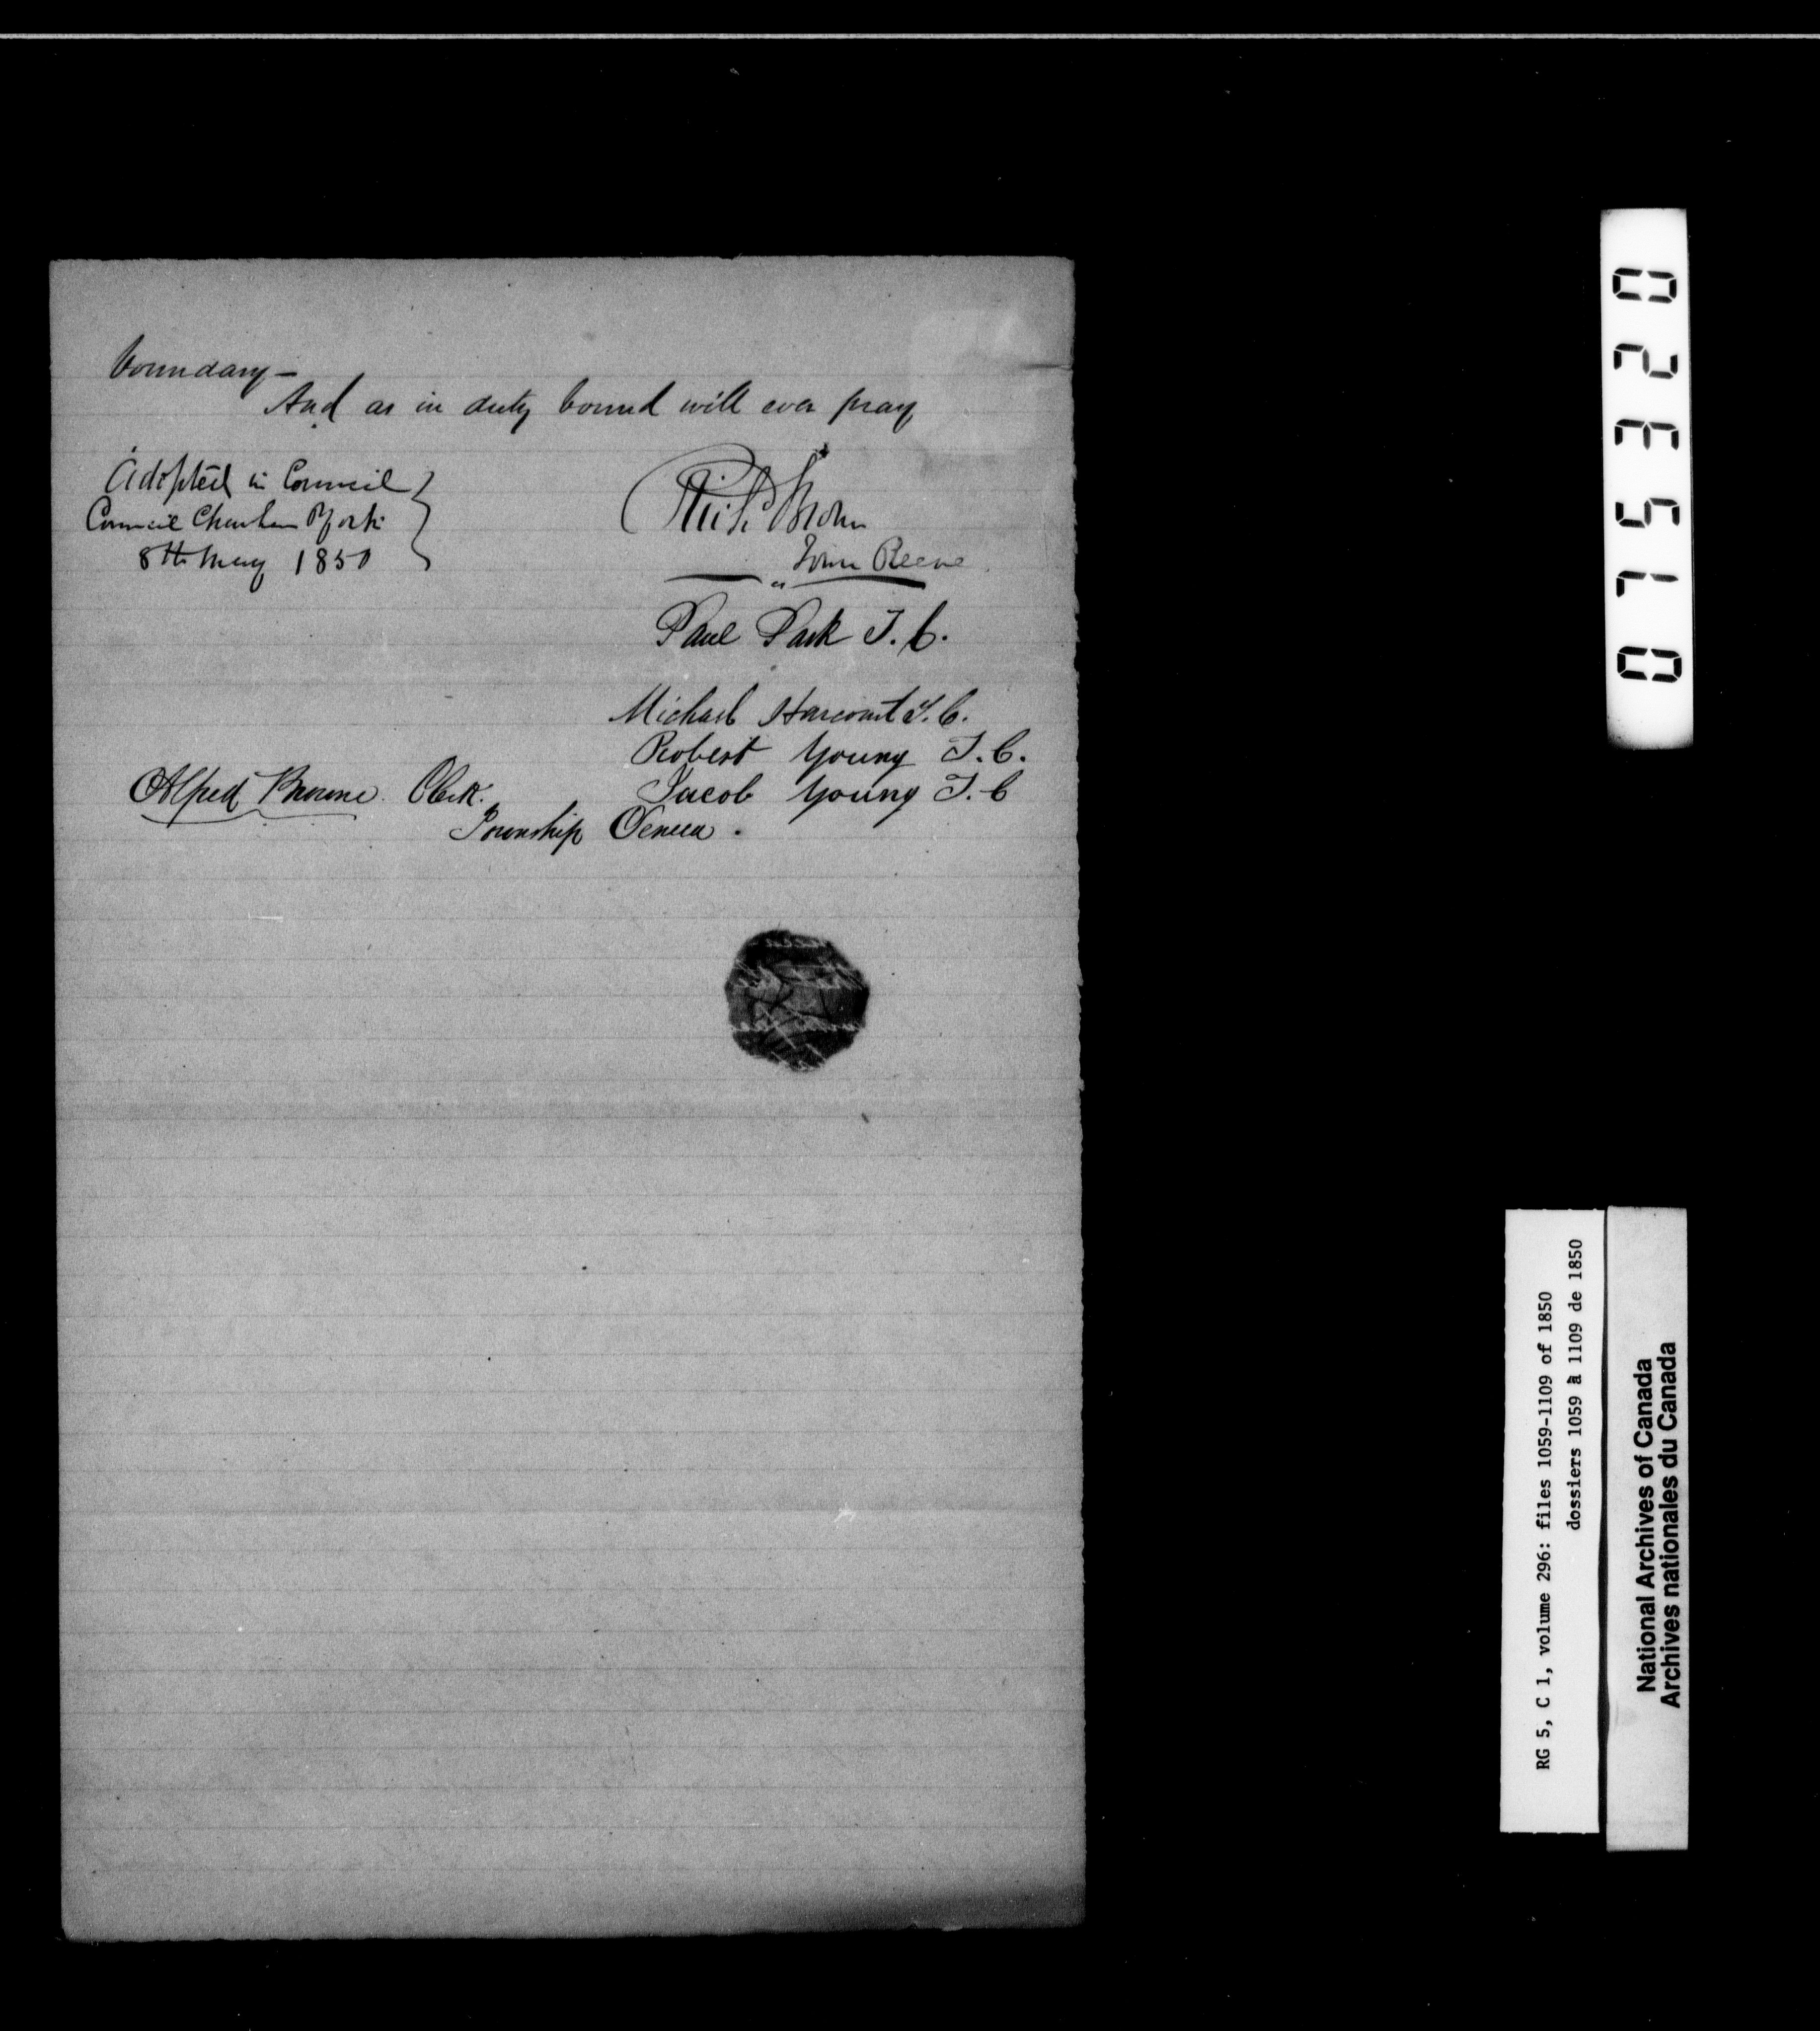 boundary —
And as in duty bound will ever pray
Adopted in Council
Council Chamber York
8th May 1850
Richd Brown
Town Reeve
Paul Park T.C.
Michael Harcourt T.C.
Robert Young T.C.
Jacob Young T.C
Alfred Browne Clerk.
Township Seneca.
023510
RG 5, C 1, volume 296: files 1059-1109 of 1850
dossiers 1059 à 1109 de 1850
National Archives of Canada
Archives nationales du Canada